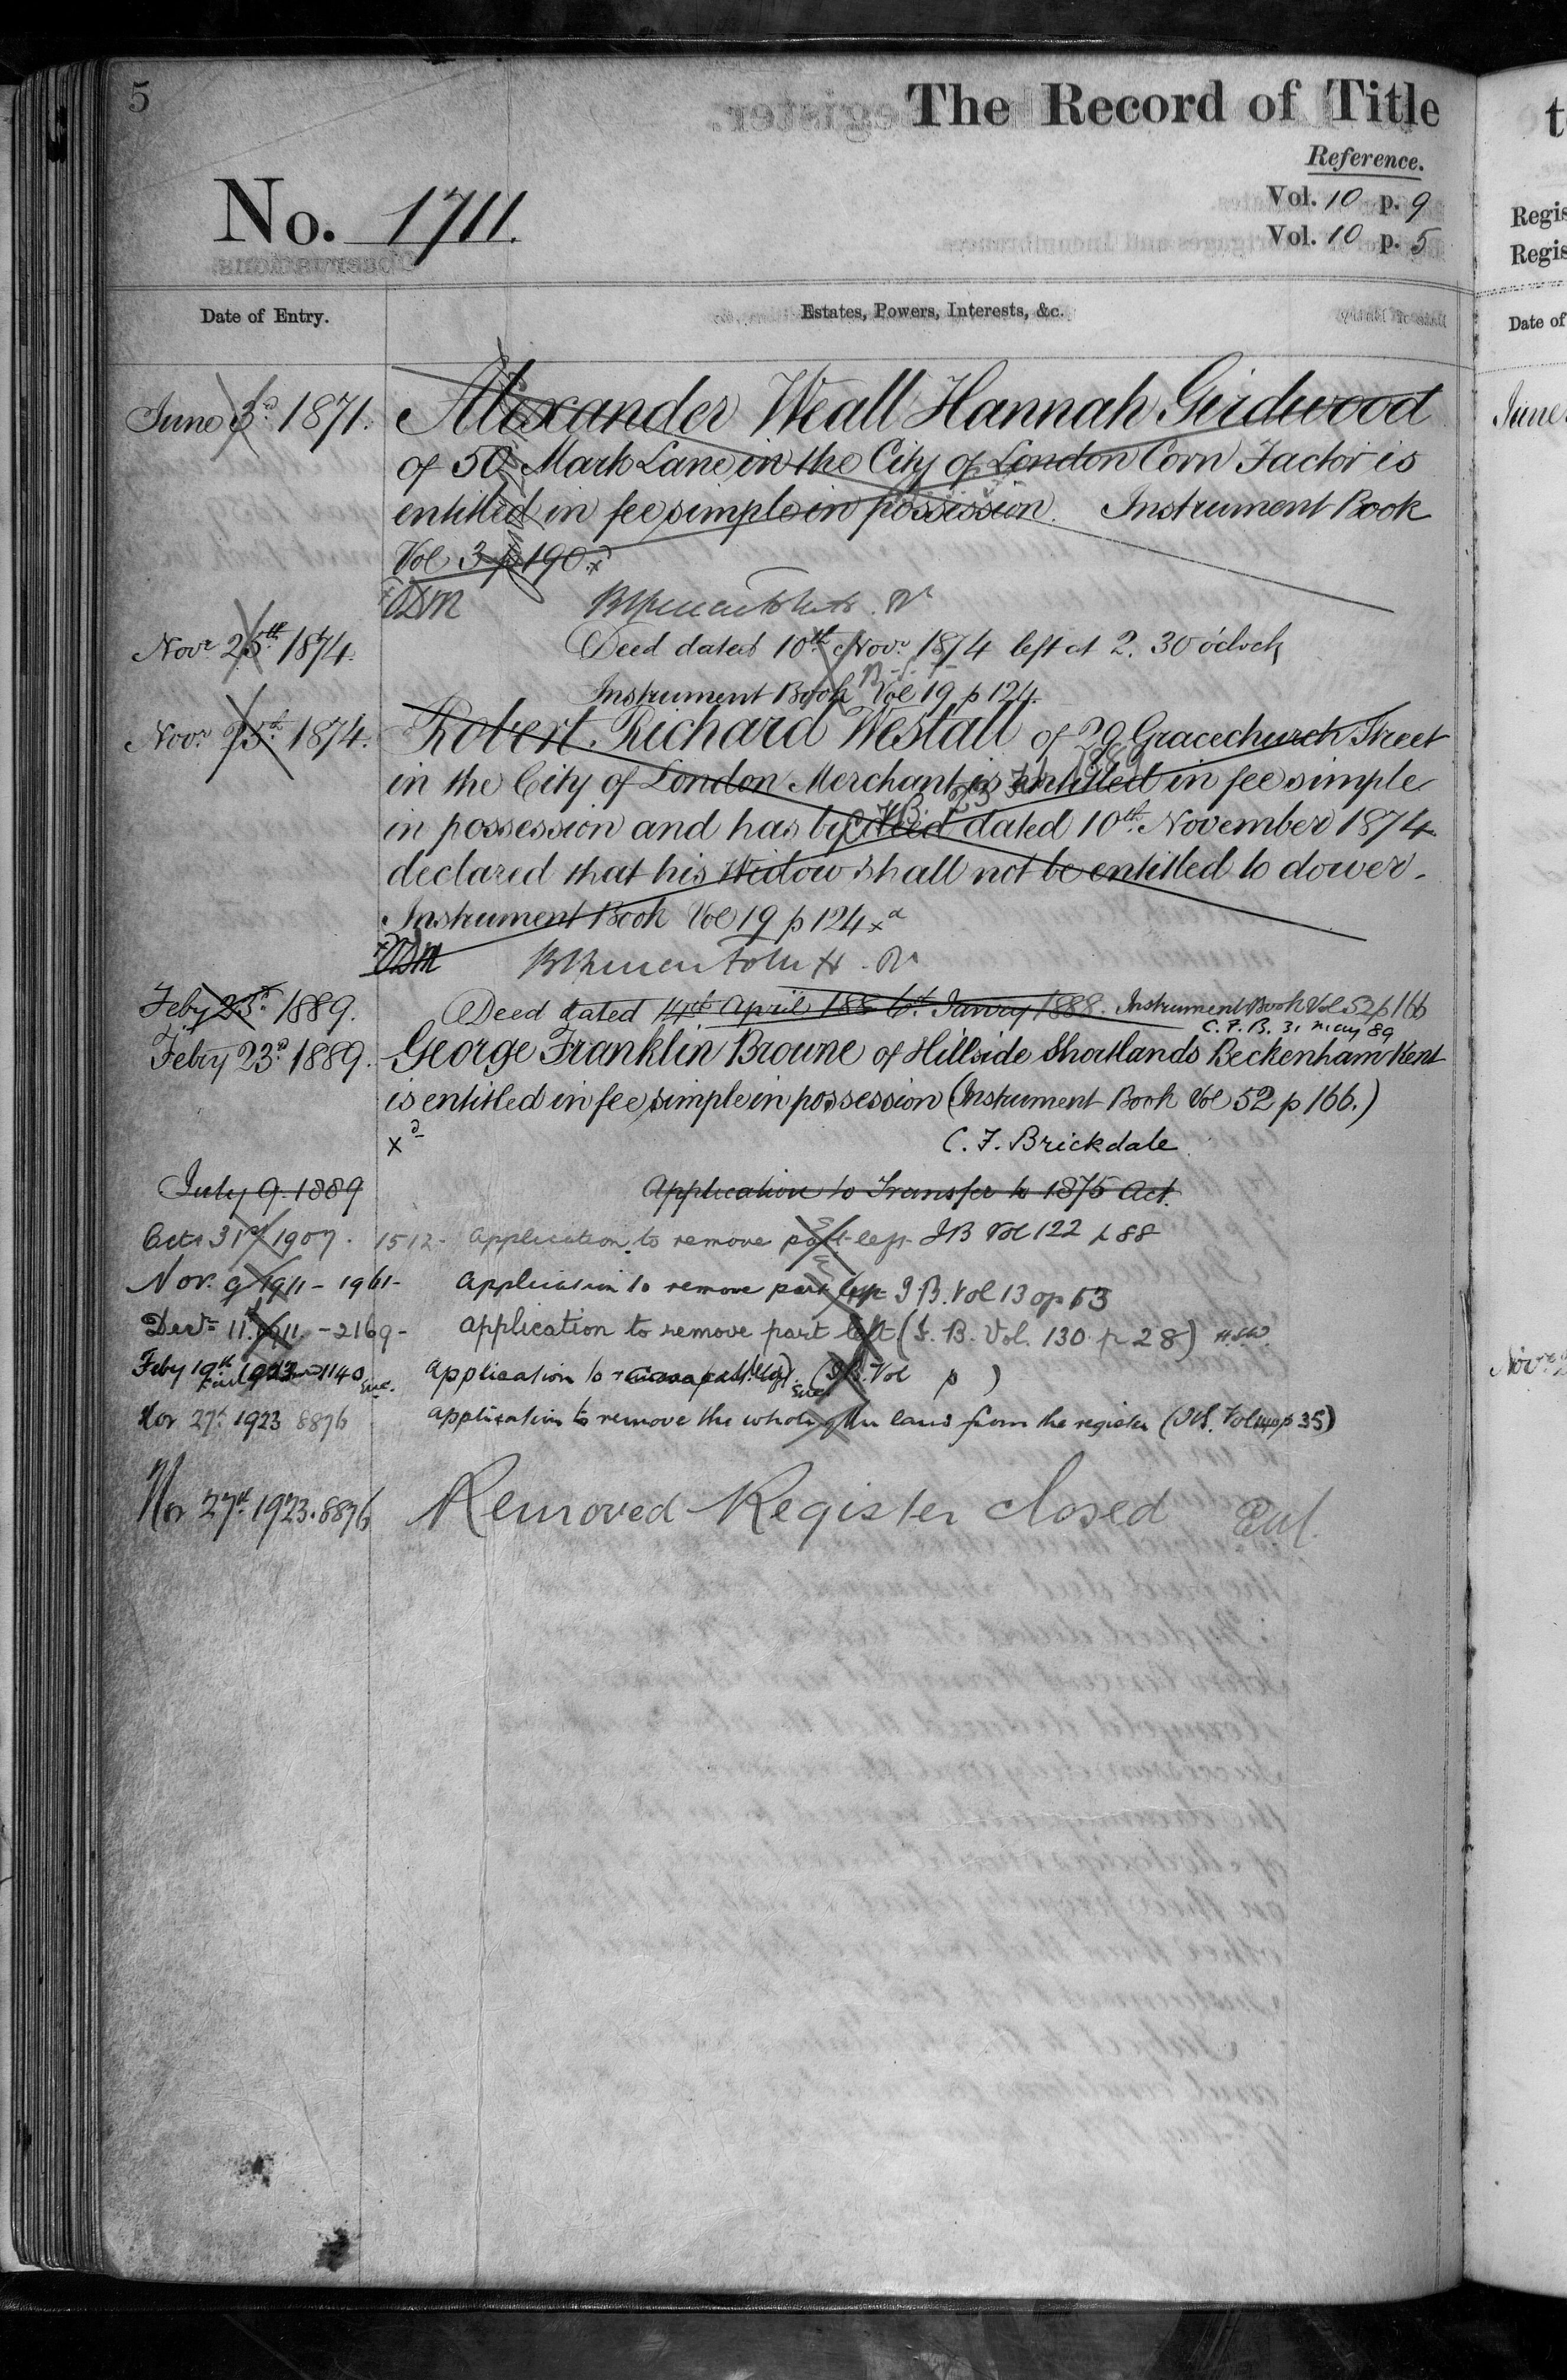 5
The Record of Title
Reference.
No. 1711.
Vol. 10 p. 9
Vol. 10 p. 5
Date of Entry.
Estates, Powers, Interests, &c.
June 3d 1871.
Alexander Weall Hannah Girdwood
of 50 Mark Lane in the City of London Corn Factor is
entitled in fee simple in possession. Instrument Book
Vol 3 p 190
Novr 25th 1874.
Deed dated 10th Novr 1874 left at 2.30 o'clock
Instrument Book Vol 19 p 124.
Novr 25th 1874.
Robert Richard Westall of 29 Gracechurch Street
in the City of London Merchant is entitled in fee simple
in possession and has by Deed dated 10th November 1874
declared that his Widow shall not be entitled to dower.
Instrument Book Vol 19 p 124
Feby 23d 1889.
Deed dated 14th April 188 Janry 1888. Instrument Book Vol 52 p 166
C. F. B. 31 May 89
Febry 23d 1889.
George Franklin Browne of Hillside Shortlands Beckenham Kent
is entitled in fee simple in possession (Instrument Book Vol 52 p 166.)
C. F. Brickdale
July 9. 1889
Application to Transfer to 1875 Act.
Octr 31st 1907. 1512- Application to remove part left IB Vol 122 p 88
Nov. 9 1911 - 1961- Application to remove part left I.B. Vol 130 p 13
Decr 11. 1911. - 2169 - Application to remove part left (I. B. Vol. 130 p 28) H.S.W.
Feby 19th 1923 1140 Application to (I.B. Vol p )
Nov 27th 1923 8876 Application to remove the whole of the land from the register (I.B. Vol 140 p 35)
Nov 27th 1923. 8876 Removed Register closed
t
Regis
Regis
Date of
June
Novr